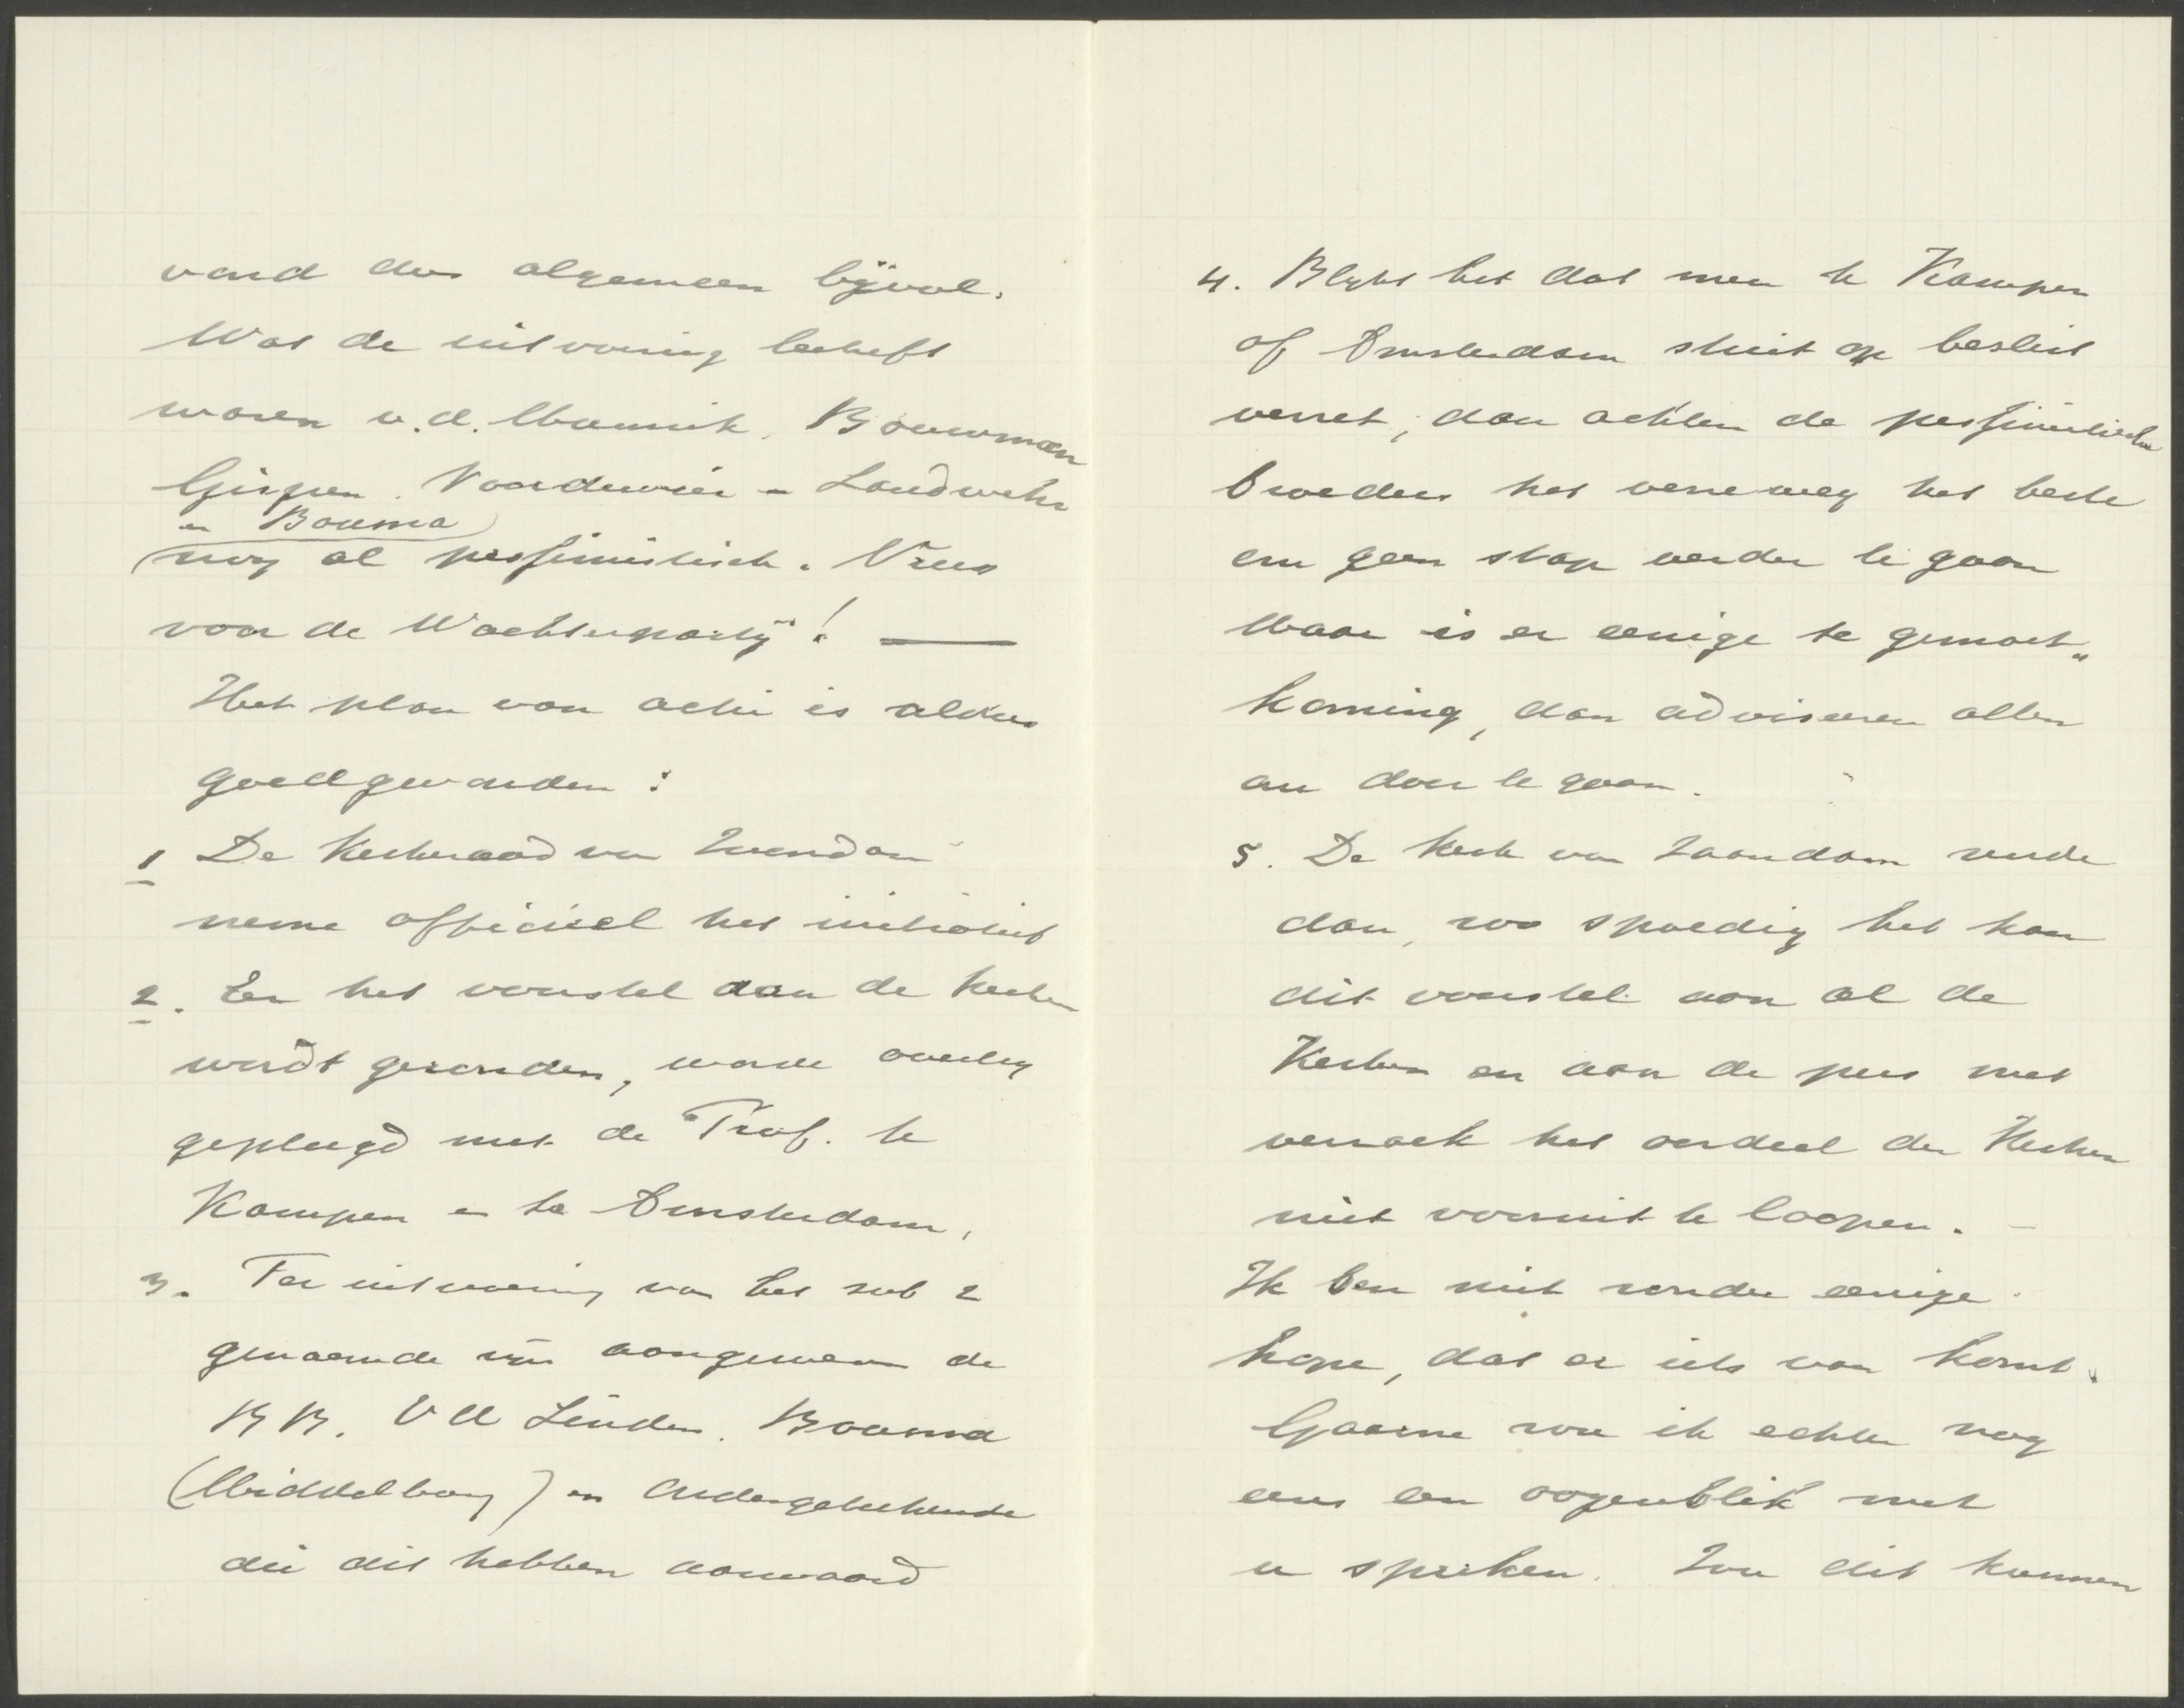 vond dus algemeen bijval.
Wat de uitvoering betreft
waren v.d. Munnik, Bouwman
Gispen. Noordewier – Landwehr
en Bouma
nog al pessimistisch. Vrees
voor de Wachterpartij! —
Het plan van actie is aldus
goedgevonden:
1 De Kerkeraad van Zaandam
neme officieel het initiatief
2. Eer het voorstel aan de Kerken
wordt gezonden, worde overleg
gepleegd met de Prof. te
Kampen en te Amsterdam,
3. Ter uitvoering van het sub 2
genoemde zijn aangewezen de
BB. V d Linden. Bouma
(Middelburg) en Ondergeteekende
die dit hebben aanvaard
4. Blykt het dat men te Kampen
of Amsterdam stuit op beslist
verzet, dan achten de pessimistische
broeders het verreweg het beste
om geen stap verder te gaan
Maar is er eenige te gemoet„
koming, dan adviseeren allen
om door te gaan.
5. De Kerk van Zaandam zende
dan, zoo spoedig het kan
dit voorstel aan al de
Kerken en aan de pers met
verzoek het oordeel der Kerken
niet vooruit te loopen. –
Ik ben niet zonder eenige
hope, dat er iets van komt.
Gaarne zou ik echter nog
eens een oogenblik met
u spreken. Zou dit kunnen